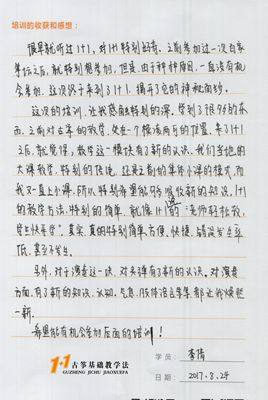 培训的收获和感想:
很早就听过1+1,对1+1特别好奇。之前参加过一次百家
争鸣之后,就特别想参加,但是,由于种种原因,一直没有机
会参加,这次终于来到了1+1,揭开了它的神秘面纱。
这次的培训,让我感触特别的深,学到了很多的东
西,之前对古筝的教学,处在一个模模糊糊的位置,来了1+1
之后,就觉得,教学这一模块有了新的认识,我们当地的
大课教学,特别的传统,还是之前的集体小课的模式,而
我又一直上小课,所以特别希望能够吸收新的知识,1+1
的教学方法,特别的简单,就像1+1说的"老师轻松教,
学生快乐学",真实,真的特别简单,方便,快捷,错误发生率
低,甚至不发生。
另外,对于演奏这一块,对未来有了新的认识,对演奏
方面,有了新的知识,认知,气息,肢体语言等等都让我焕然
一新。
希望能有机会参加后面的培训!
1+1古筝基础教学法
GUZHENG JICHU JIAOXUEFA
学员: 李倩
日期: 2017.8.24